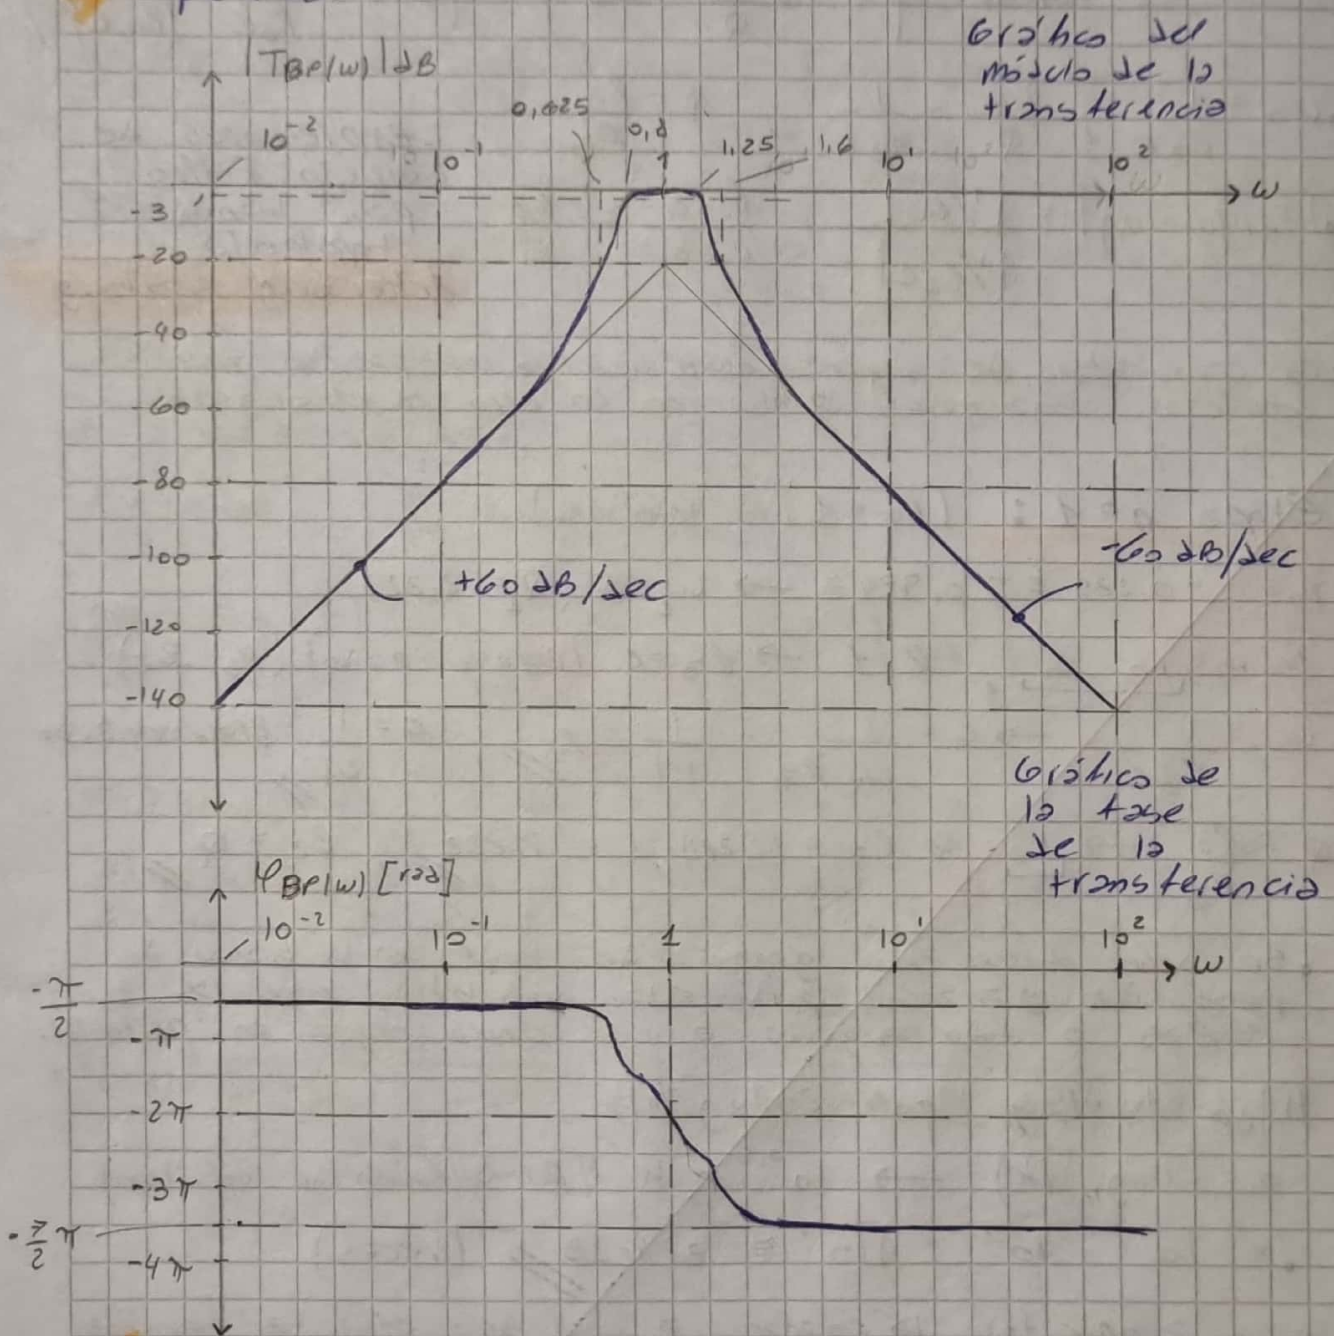 Gráfico del
módulo de la
transferencia
|T_BP(ω)| dB
0,625
0,8
1,25
1,6
10^-2
10^-1
1
10^1
10^2
ω
-3
-20
-40
-60
-80
-100
-120
-140
+60 dB/dec
-60 dB/dec
Gráfico de
la fase
de la
transferencia
φ_BP(ω) [rad]
10^-2
10^-1
1
10^1
10^2
ω
-π/2
-π
-2π
-3π
-7/2 π
-4π